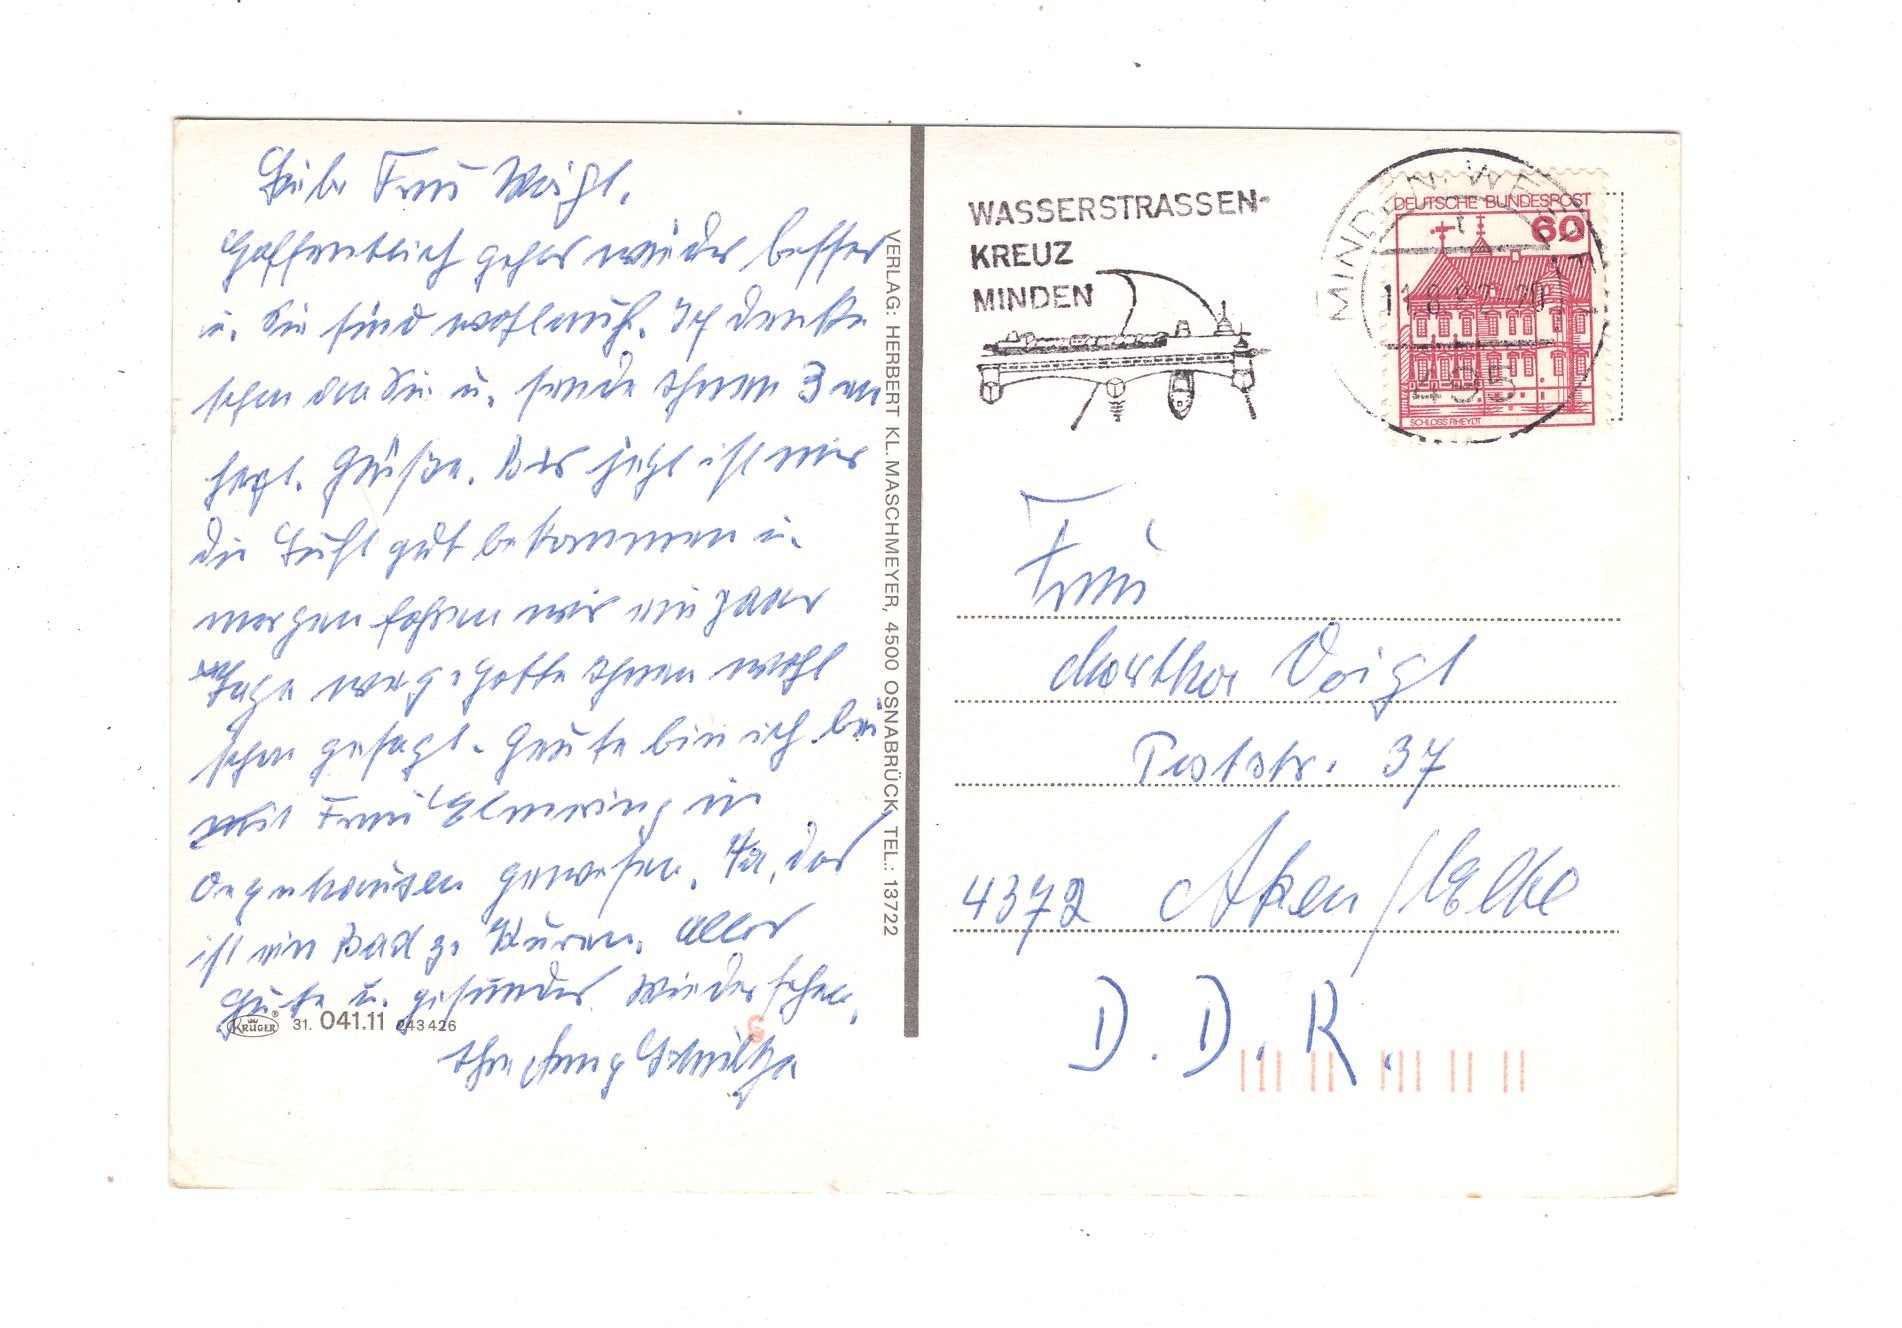 Liebe Frau Voigt,
Hoffentlich geht es wieder besser
u. Sie sind wohlauf. Ich denke
schon an Sie u. sende Ihnen
herzl. Grüße. Bis jetzt ist mir
die Luft gut bekommen u.
morgen fahren wir ein paar
Tage weg, hatte Ihnen wohl
schon gesagt. Heute bin ich
mit Frau in
Oeynhausen gewesen. Ja, das
ist ein Bad z. Kuren. Alles
Gute u. gesundes Wiedersehen,
Ihre
KRÜGER® 31. 041.11 243 426
VERLAG: HERBERT KL. MASCHMEYER, 4500 OSNABRÜCK, TEL.: 13722
WASSERSTRASSEN-
KREUZ
MINDEN
MINDEN, WESTF 1
11.8.82-20
495
DEUTSCHE BUNDESPOST
60
SCHLOSS RHEYDT
Frau
Martha Voigt
Poststr. 37
4372 Aken/Elbe
D.D.R.